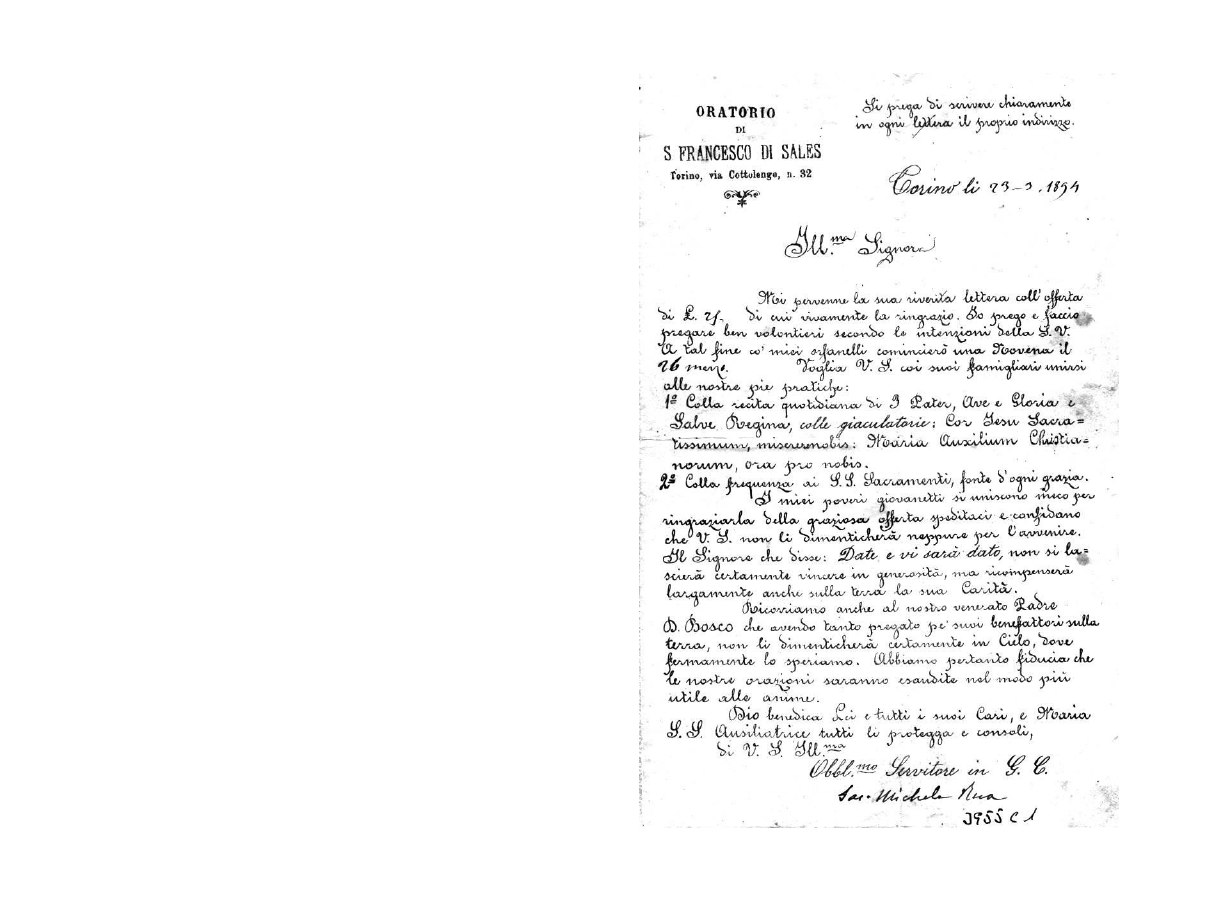 ORATORIO
DI
S FRANCESCO DI SALES
Torino, via Cottolengo, n. 32
Si prega di scrivere chiaramente
in ogni lettera il proprio indirizzo.
Torino li 23-3.1894
Ill.ma Signora
Mi pervenne la sua riverita lettera coll'offerta
di L. di cui vivamente la ringrazio. Io prego e faccio
pregare ben volontieri secondo le intenzioni della S. V.
A tal fine co' miei orfanelli comincierò una Novena il
26 marzo. Voglia V. S. coi suoi famigliari unirsi
alle nostre pie pratiche:
1º Colla recita quotidiana di 3 Pater, Ave e Gloria e
Salve Regina, colle giaculatorie: Cor Jesu Sacra=
tissimum, miserere nobis: Maria Auxilium Christia=
norum, ora pro nobis.
2º Colla frequenza ai S.S. Sacramenti, fonte d'ogni grazia.
I miei poveri giovanetti si uniscono meco per
ringraziarla della graziosa offerta speditaci e confidano
che V. S. non li dimenticherà neppure per l'avvenire.
Il Signore che disse: Date e vi sarà dato, non si la=
scierà certamente vincere in generosità, ma ricompenserà
largamente anche sulla terra la sua Carità.
Ricorriamo anche al nostro venerato Padre
D. Bosco che avendo tanto pregato pe' suoi benefattori sulla
terra, non li dimenticherà certamente in Cielo, dove
fermamente lo speriamo. Abbiamo pertanto fiducia che
le nostre orazioni saranno esaudite nel modo più
utile alle anime.
Dio benedica Lei e tutti i suoi Cari, e Maria
S. S. Ausiliatrice tutti li protegga e consoli,
di V. S. Ill.ma
Obbl.mo Servitore in G. C.
Sac. Michele Rua
3955 C 1